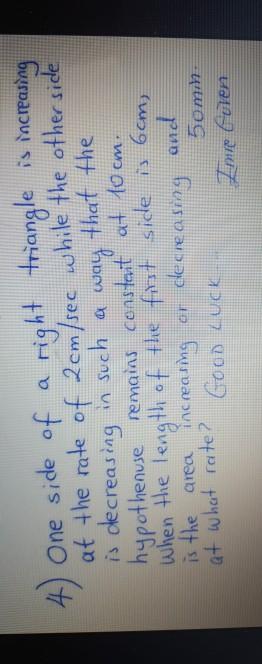 4) One side of a right triangle is increasing
at the rate of 2cm/sec while the other side
is decreasing in such a way that the
hypothenuse remains constant at 10 cm.
When the length of the first side is 6cm,
is the area increasing or decreasing and
at what rate? GOOD LUCK... 50min.